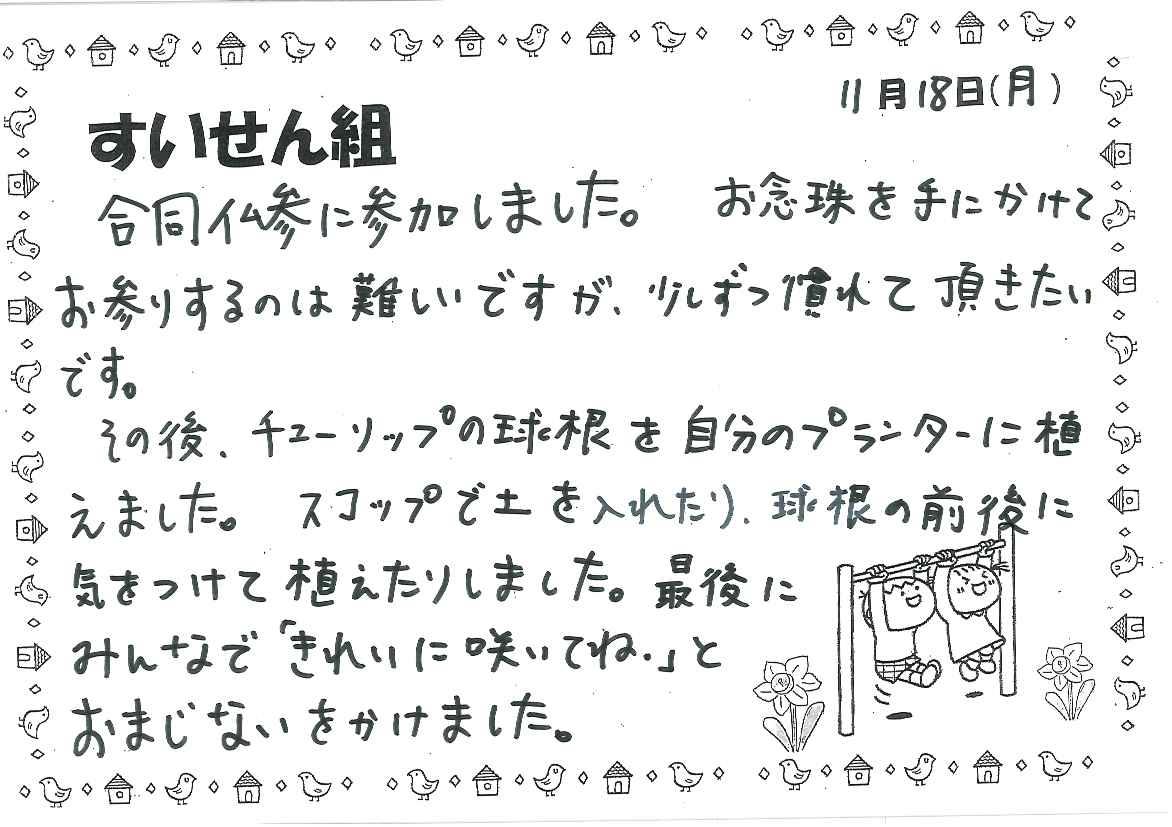 11月18日(月)
すいせん組
合同仏参に参加しました。 お念珠を手にかけて
お参りするのは難しいですが、少しずつ慣れて頂きたい
です。
その後、チューリップの球根を自分のプランターに植
えました。 スコップで土を入れたり、球根の前後に
気をつけて植えたりしました。最後に
みんなで「きれいに咲いてね。」と
おまじないをかけました。